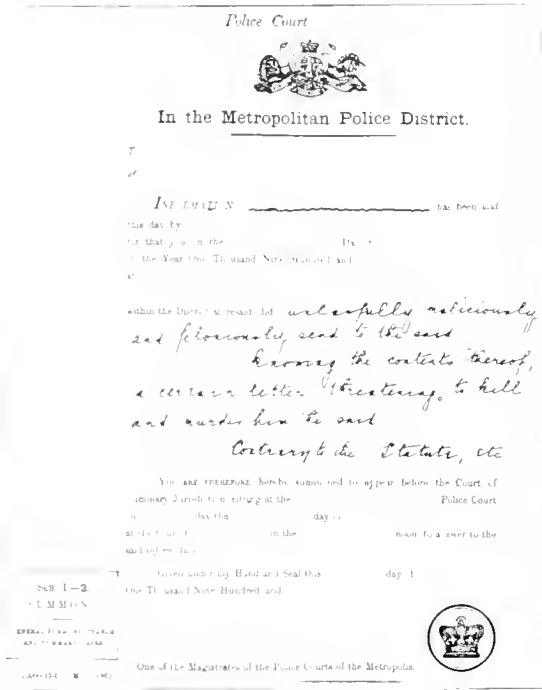 Police Court
In the Metropolitan Police District.
has been laid
this day by
in the
the Year One Thousand Nine Hundred and
at
within the District aforesaid did unlawfully maliciously
and feloniously send to the said
knowing the contents thereof,
a certain letter threatening to kill
and murder him the said
Contrary to the Statute, etc
YOU ARE THEREFORE hereby summoned to appear before the Court of
Summary Jurisdiction sitting at the Police Court
day the day
in the noon to answer to the
said
Given under my Hand and Seal this day
One Thousand Nine Hundred and
One of the Magistrates of the Police Courts of the Metropolis.